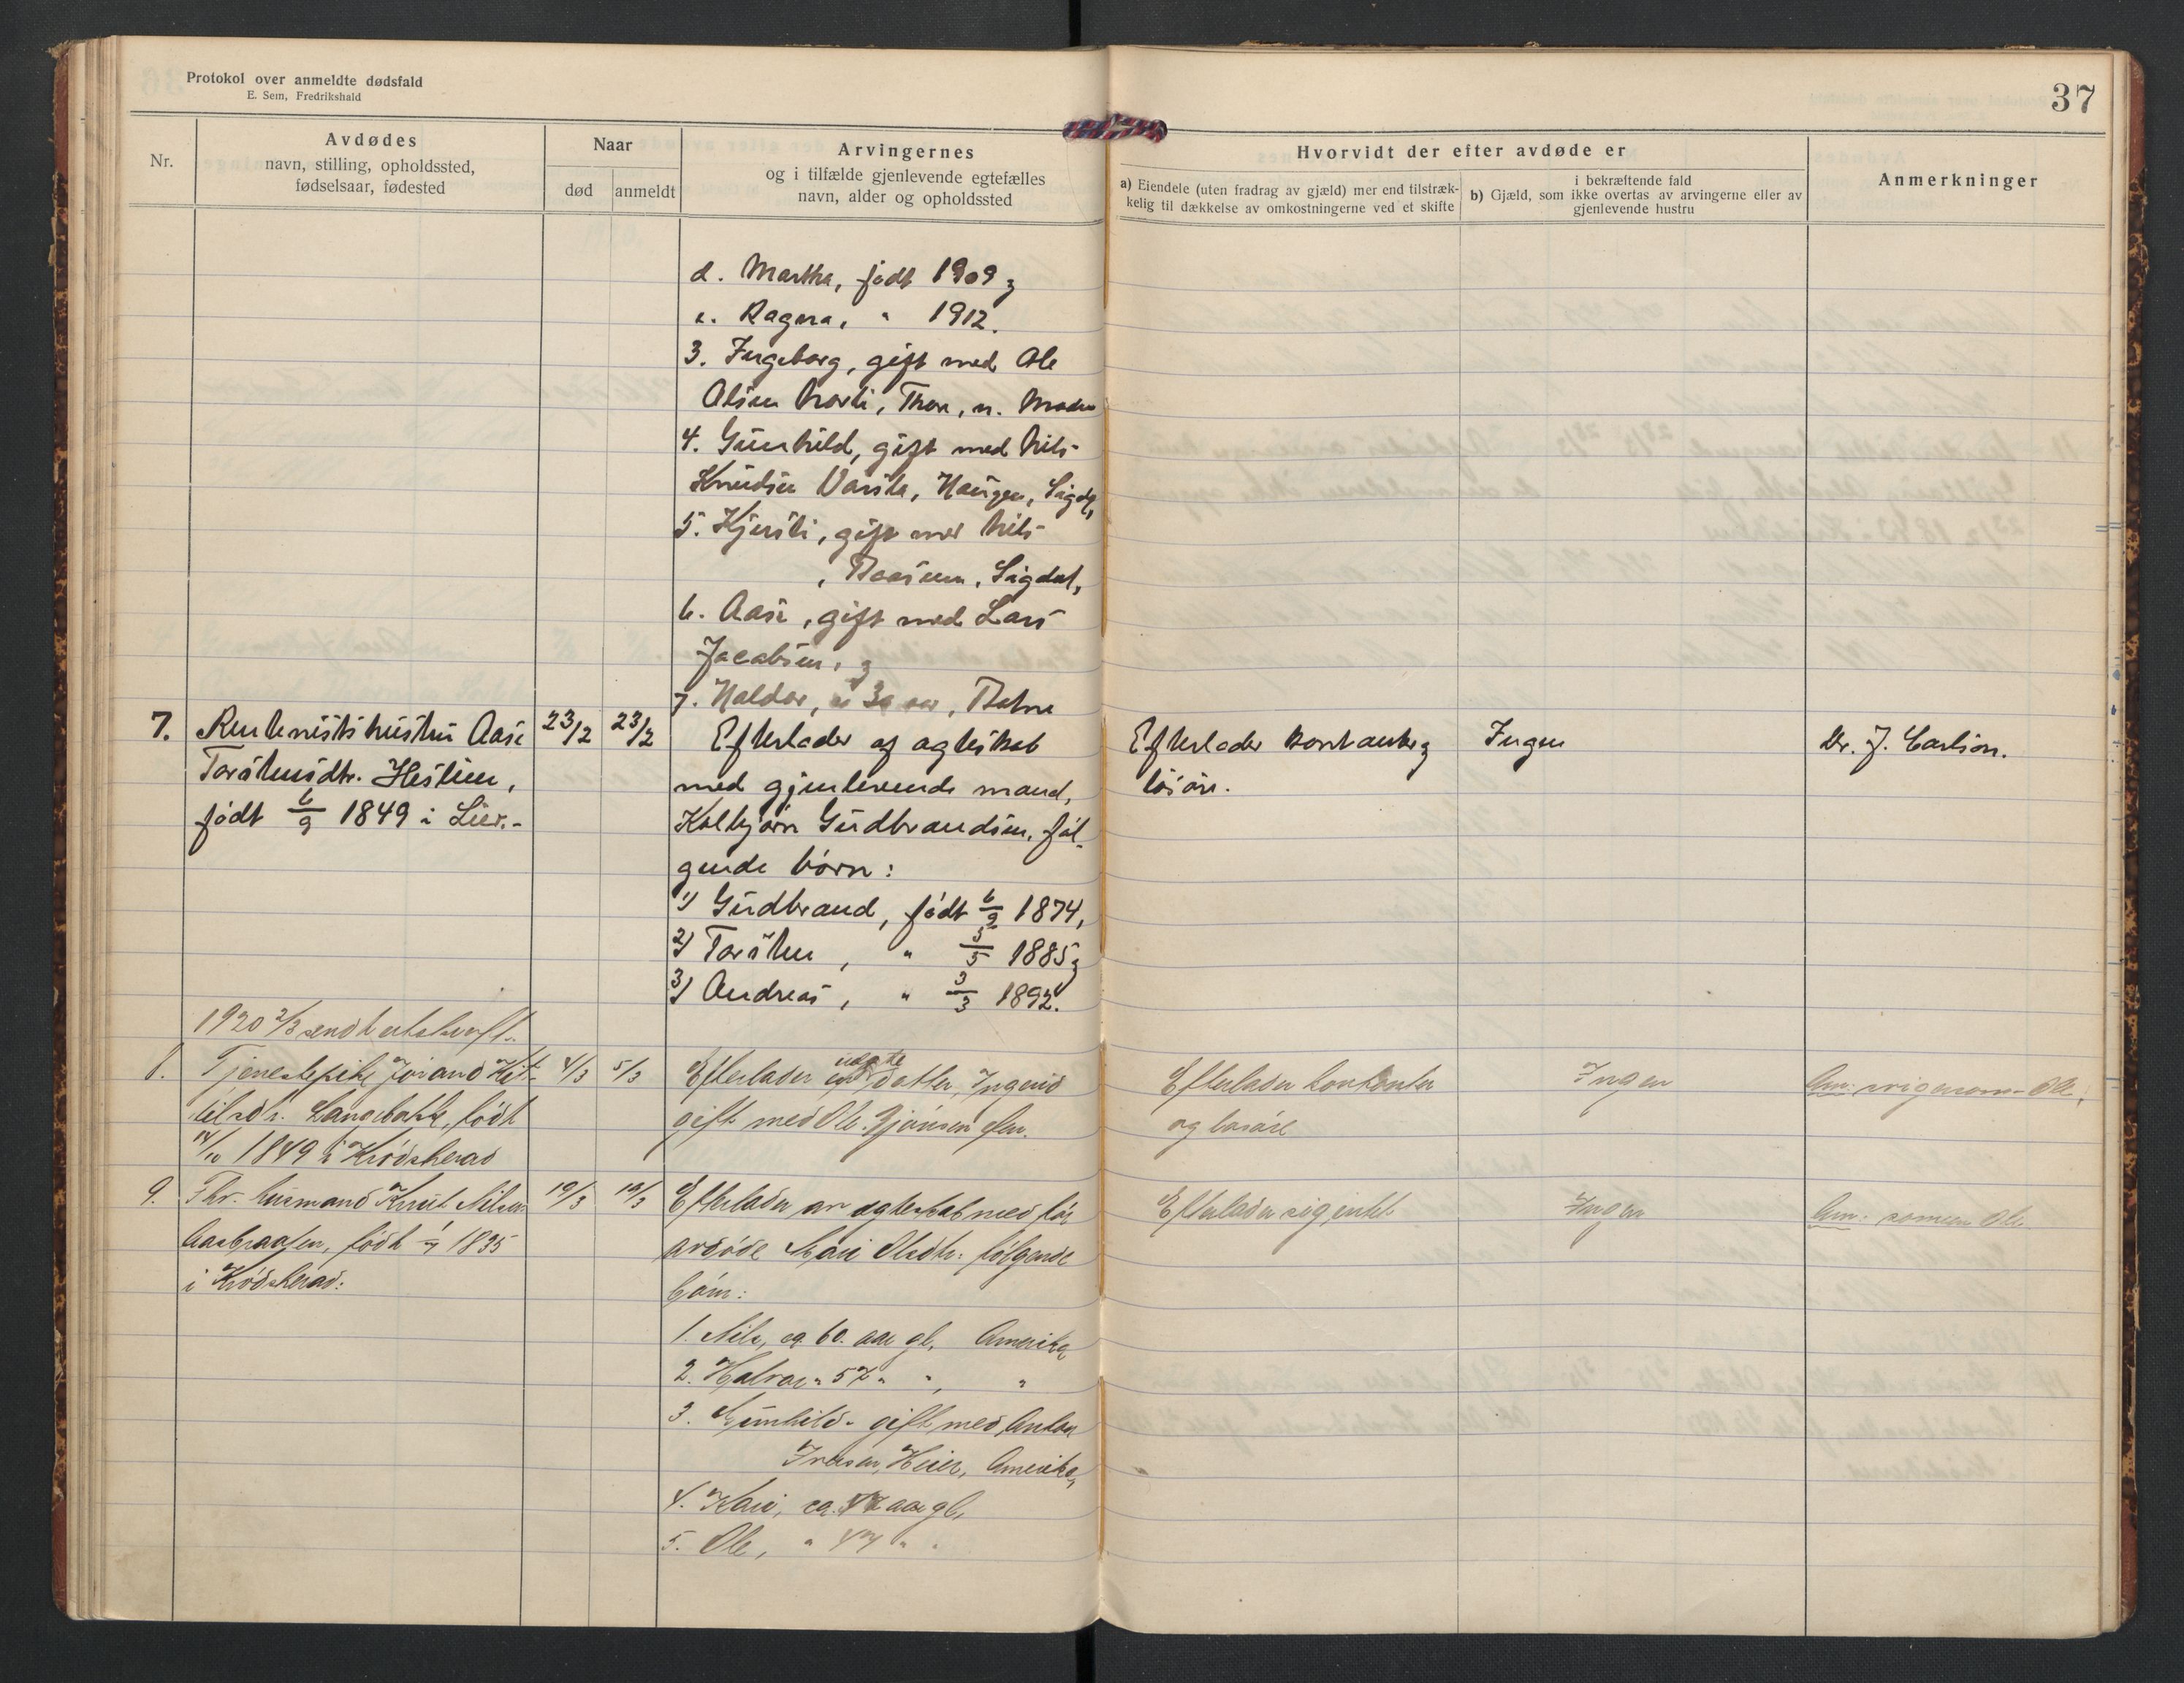 Protokol over anmeldte dødsfald
E. Sem, Fredrikshald
37
Nr.
Avdødes
navn, stilling, opholdssted,
fødselsaar, fødested
Naar
død
anmeldt
Arvingernes
og i tilfælde gjenlevende egtefælles
navn, alder og opholdssted
Hvorvidt der efter avdøde er
a) Eiendele (uten fradrag av gjæld) mer end tilstræk-
kelig til dækkelse av omkostningerne ved et skifte
i bekræftende fald
b) Gjæld, som ikke overtas av arvingerne eller av
gjenlevende hustru
Anmerkninger
d. Martha, født 1909 &
e. Ragna, " 1912.
3. Ingeborg, gift med Ole
Olsen Thon, n. Modum
4. Gunhild, gift med Nils
Knudsen Haugen, Sigdal,
5. Kjersti, gift med Nils
, Sigdal,
6. Aase, gift med Lars
Jacobsen, &
7. Haldor, 30 aar,
7.
Rentenistshustru Aase
Torstensdtr. Hestlien,
født 6/9 1849 i Lier.-
23/2
23/2
Efterlader af ægteskab
med gjenlevende mand,
Kolbjørn Gudbrandsen, føl-
gende børn:
1) Gudbrand, født 6/9 1874,
2) Torsten, " 5/5 1885 &
3) Andreas, " 3/3 1892.
Efterlader kontanter &
løsøre.
Ingen
Dr. J. Carlson.
1920 2/3 sendt utskrift.
8.
Tjenestepike Jørand Ket-
tilsdtr. Langebakke, født
14/10 1849 i Krødsherad
4/3
5/3
Efterlader uegte datter, Ingerid
gift med Ole Bjørnsen
Efterlader kontanter
og løsøre
Ingen
Anm: svigersønn Ole
9.
Fhv. husmand Knut Nilsen
Aasbraaten, født 1835
i Krødsherad:
19/3
19/3
Efterlader av egteskab med før
avdøde Mari Olsdtr. følgende
børn:
1. Nils, ca. 60. aar gl. Amerika,
2. Halvor " 57 " ", "
3. Gunhild gift med Anton
Iversen, Heier, Amerika,
4. Kari, ca. aar gl.
5. Ole, " 47 " "
Efterlader sig intet
Ingen
Anm: sønnen Ole